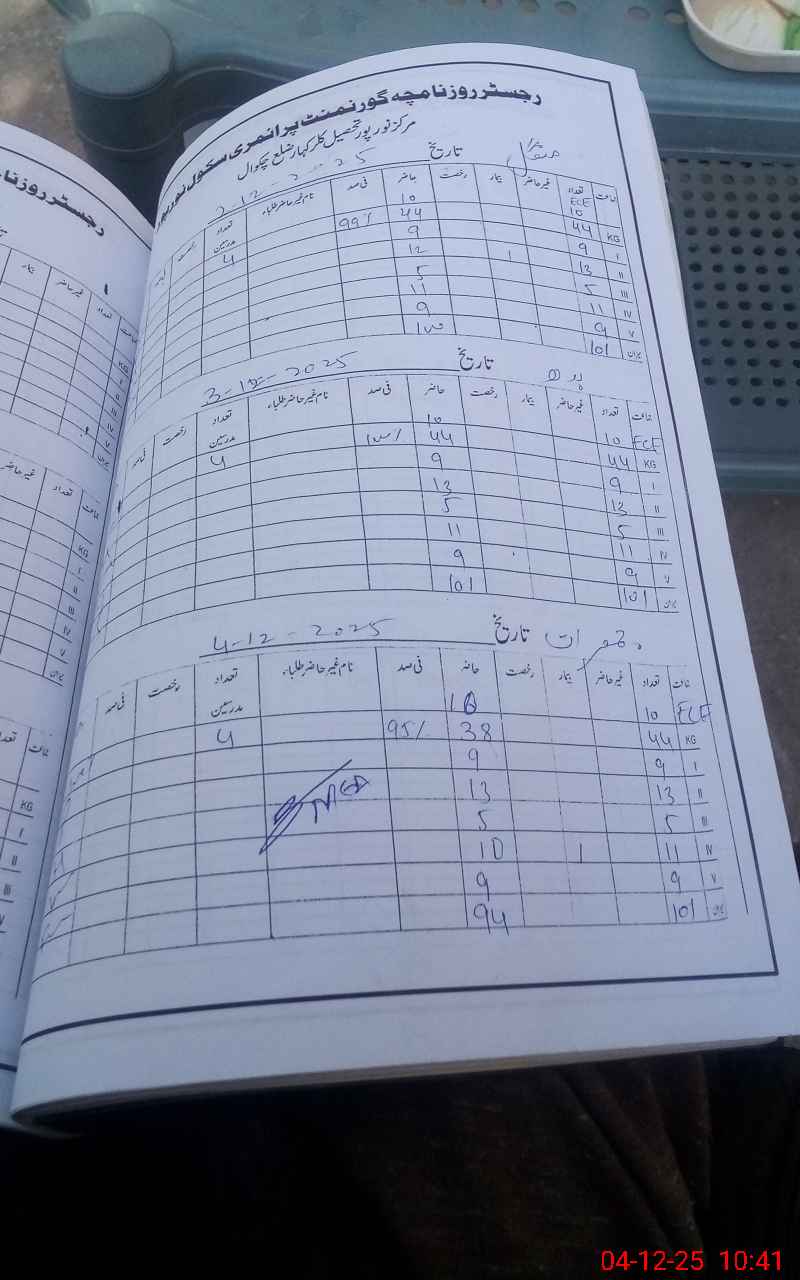 رجسٹر روزنامچہ گورنمنٹ پرائمری سکول نور پور
مرکز نور پور تحصیل کلر کہار ضلع چکوال
منگل تاریخ 2-12-2025
جماعت تعداد غیر حاضر بیمار رخصت حاضر فی صد نام غیر حاضر طلباء تعداد مدرسین رخصت
ECE 10 10
KG 44 44 99% 4
I 9 9
II 13 1 12
III 5 5
IV 11 11
V 9 9
میزان 101 100
بدھ تاریخ 3-12-2025
جماعت تعداد غیر حاضر بیمار رخصت حاضر فی صد نام غیر حاضر طلباء تعداد مدرسین رخصت فی صد
ECE 10 10
KG 44 44 100% 4
I 9 9
II 13 13
III 5 5
IV 11 11
V 9 9
میزان 101 101
جمعرات تاریخ 4-12-2025
جماعت تعداد غیر حاضر بیمار رخصت حاضر فی صد نام غیر حاضر طلباء تعداد مدرسین رخصت فی صد
ECE 10 10
KG 44 38 95% 4
I 9 9
II 13 13
III 5 5
IV 11 1 10
V 9 9
میزان 101 94
رجسٹر روزنا
جماعت تعداد غیر حاضر بیمار
KG
I
II
III
IV
V
میزان
جماعت تعداد غیر حاضر
KG
I
II
III
IV
V
میزان
جماعت تعداد
KG
I
II
III
IV
V
میزان
04-12-25 10:41